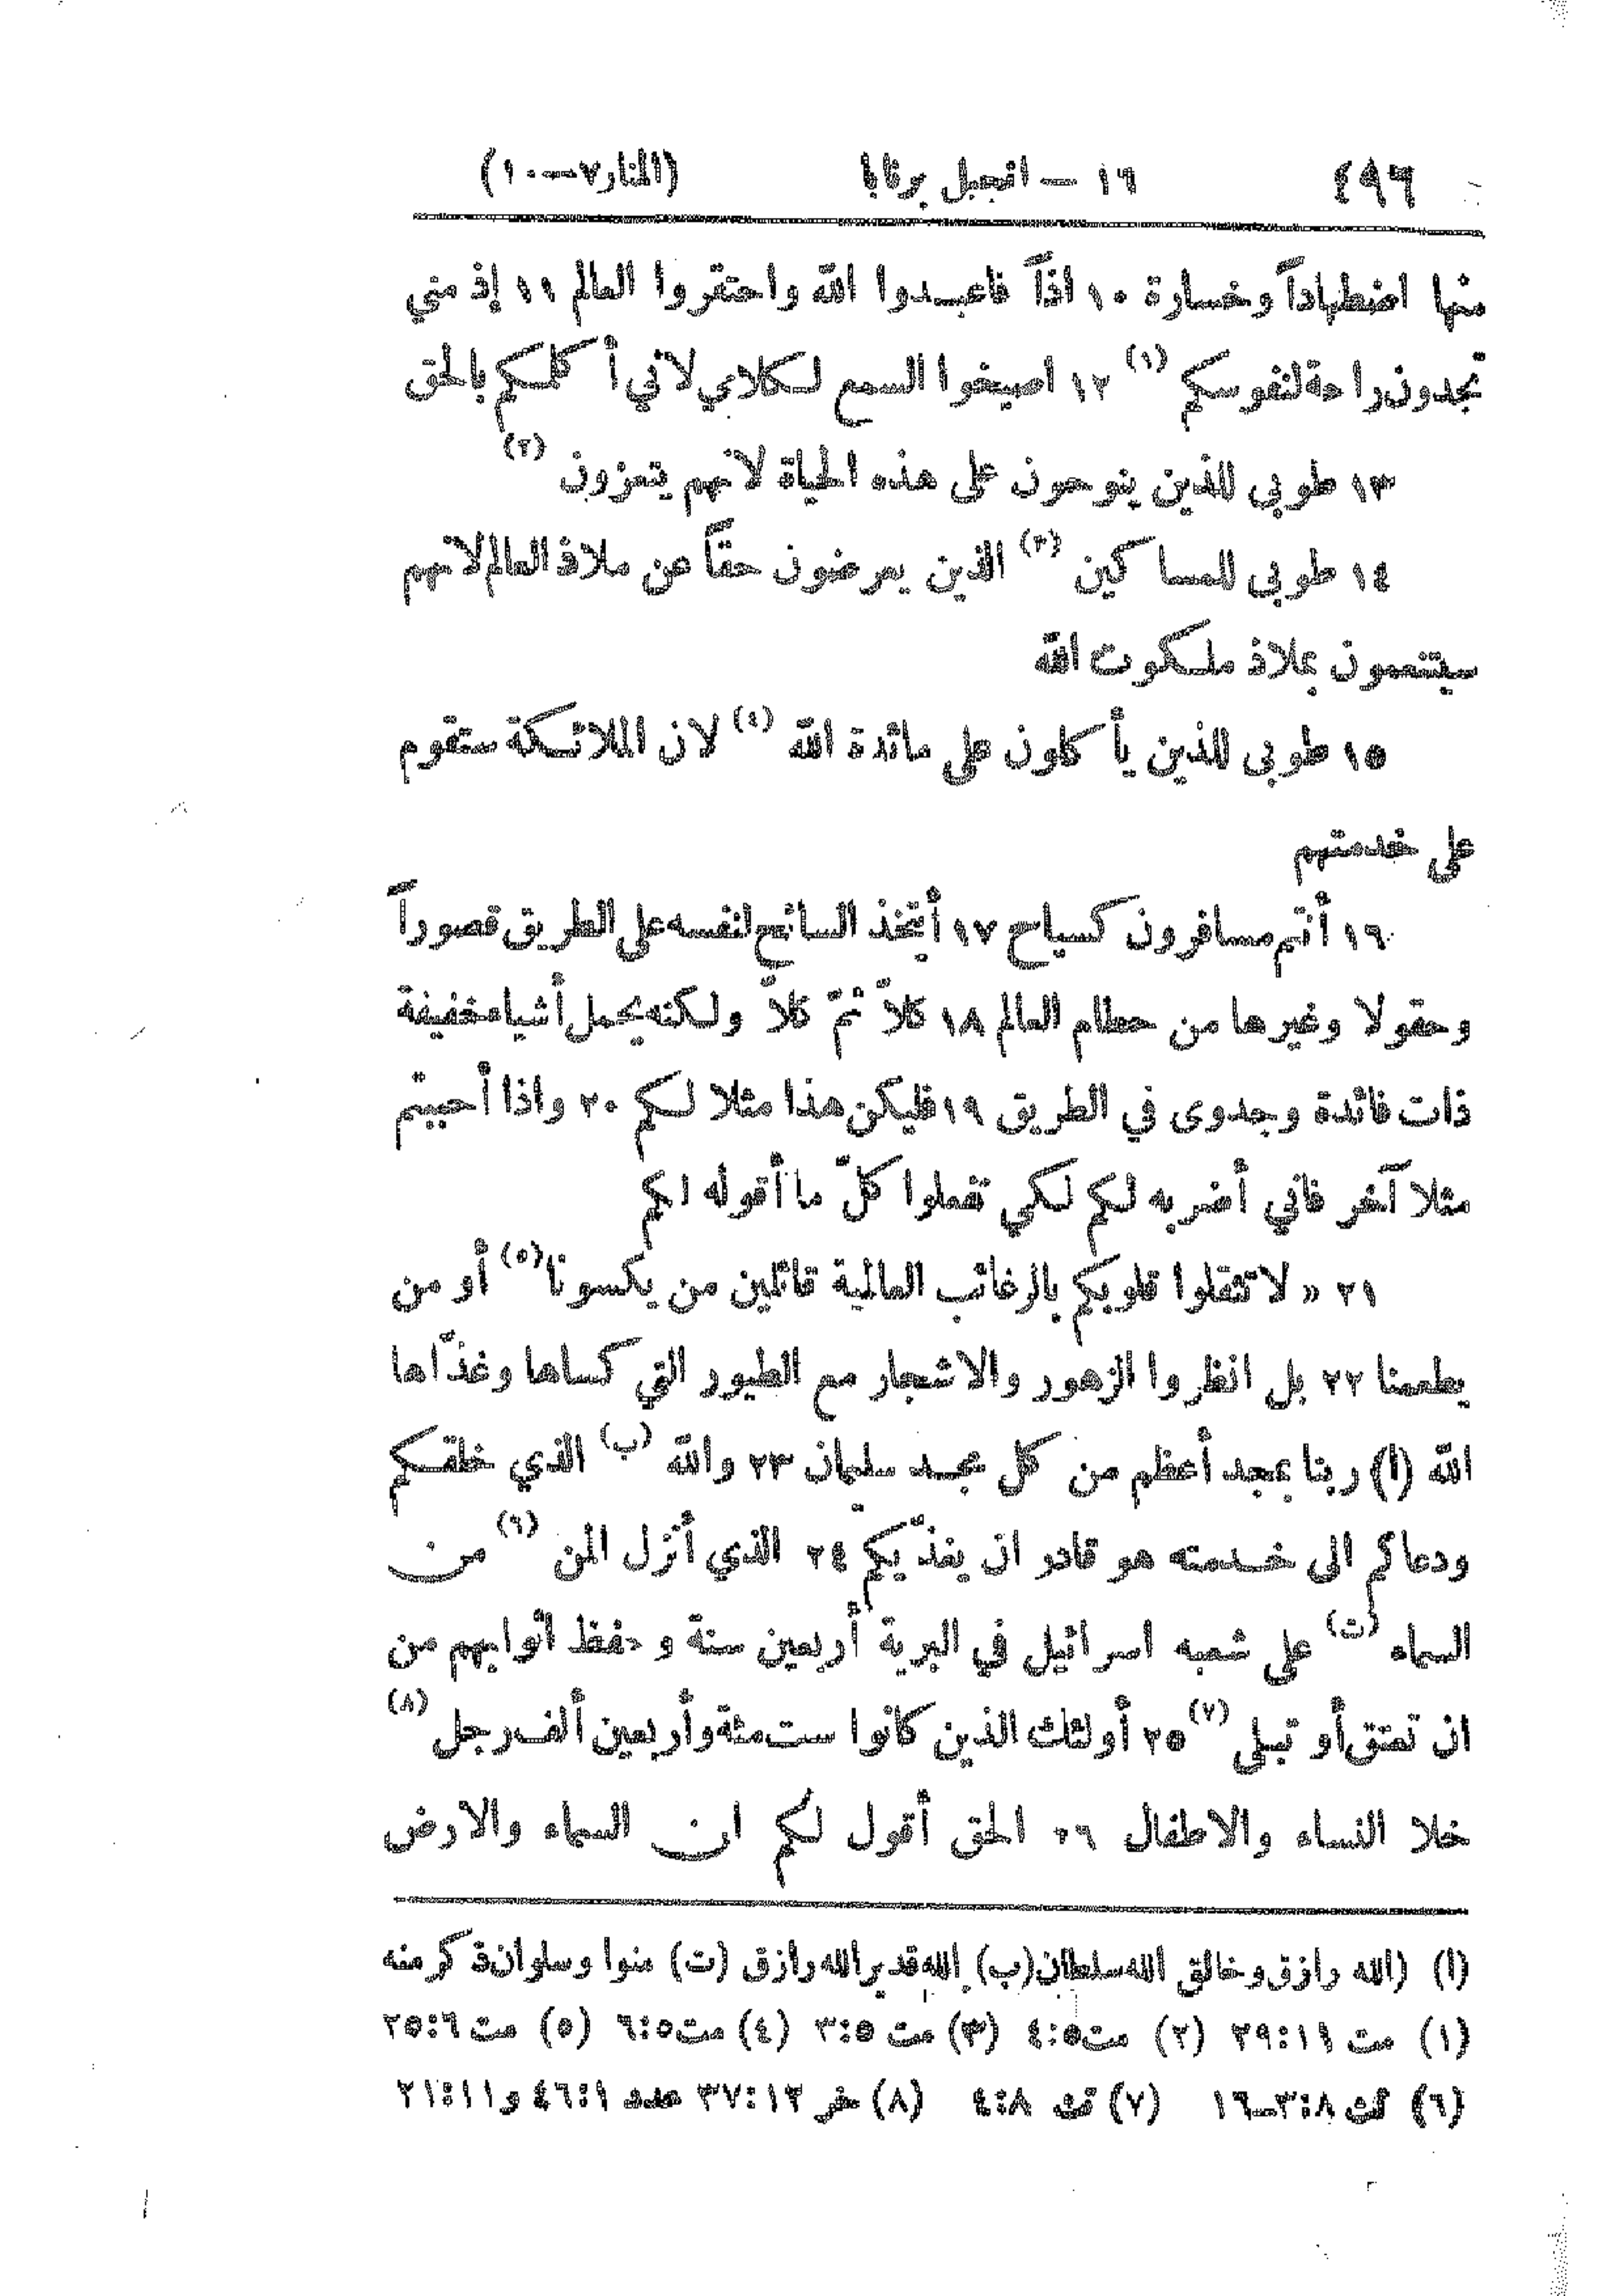 ٤٩٦ ١٦ — انجيل برنابا (المنار٧—١٠)
منها اضطهاداً وخسارة ١٠ اذاً فاعبدوا الله واحتقروا العالم ١١ إذ مني
تجدون راحة لنفوسكم (١) ١٢ اصيخوا السمع لكلامي لاني أكلمكم بالحق
١٣ طوبى للذين ينوحون على هذه الحياة لانهم يتعزون (٢)
١٤ طوبى للمساكين (٣) الذين يعرضون حقاً عن ملاذ العالم لانهم
سيتنعمون بملاذ ملكوت الله
١٥ طوبى للذين يأكلون على مائدة الله (٤) لان الملائكة ستقوم
على خدمتهم
١٦ أنتم مسافرون كسياح ١٧ أيتخذ السائح لنفسه على الطريق قصوراً
وحقولا وغيرها من حطام العالم ١٨ كلاّ ثمّ كلاّ ولكنه يحمل أشياء خفيفة
ذات فائدة وجدوى في الطريق ١٩ فليكن هذا مثلا لكم ٢٠ واذا أحببتم
مثلا آخر فاني أضربه لكم لكي تفعلوا كلّ ما أقوله لكم
٢١ « لا تثقلوا قلوبكم بالرغائب العالمية قائلين من يكسونا (٥) أو من
يطعمنا ٢٢ بل انظروا الزهور والاشجار مع الطيور التي كساها وغذّاها
الله (ا) ربنا بمجد أعظم من كل مجد سليمان ٢٣ والله (ب) الذي خلقكم
ودعاكم الى خدمته هو قادر ان يغذّيكم ٢٤ الذي أنزل المن (٦) من
السماء (ت) على شعبه اسرائيل في البرية أربعين سنة وحفظ اثوابهم من
ان تعتق أو تبلى (٧) ٢٥ أولئك الذين كانوا ست مئة وأربعين ألف رجل (٨)
خلا النساء والاطفال ٢٦ الحق أقول لكم ان السماء والارض
(ا) (الله رازق وخالق الله سلطان (ب) الله قدير الله رازق (ت) منوا وسلوان ذكر منه
(١) مت ١١:٢٩ (٢) مت ٥:٤ (٣) مت ٥:٣ (٤) مت ٥:٦ (٥) مت ٦:٢٥
(٦) تث ٨:٣—١٦ (٧) تث ٨:٤ (٨) خر ١٢:٣٧ عدد ١:٤٦ و ١١:٢١